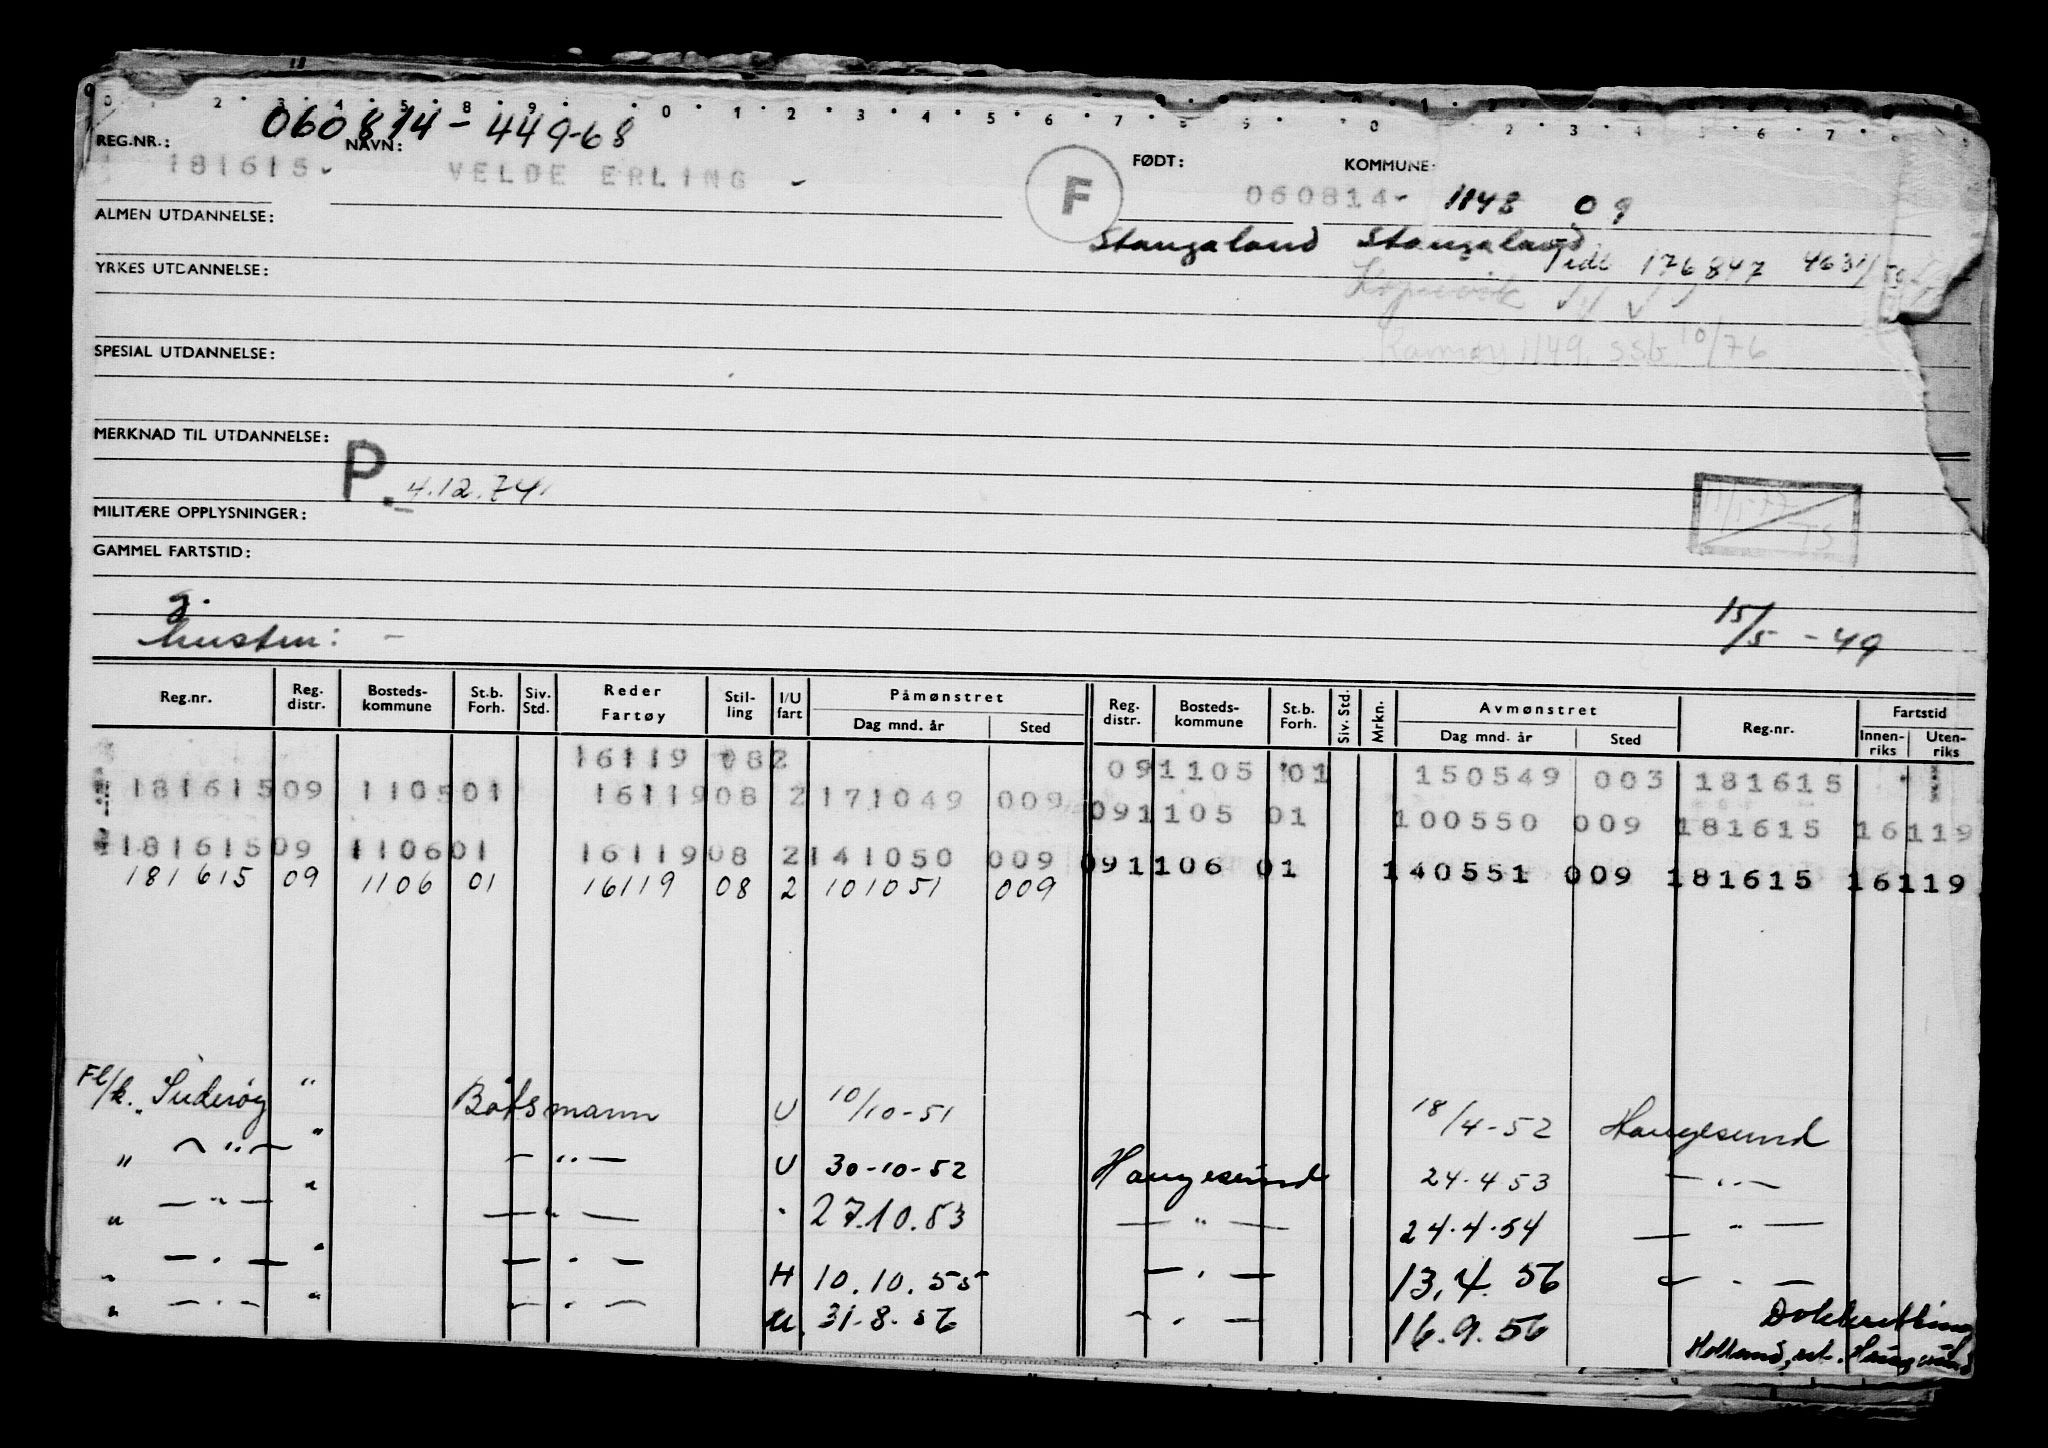 060814-449-68
REG.NR.: NAVN: FØDT: KOMMUNE:
181615- VELDE ERLING - F 060814- 1148 09
ALMEN UTDANNELSE:
Stangaland Stangaland
Tidl 176847 4631/50
YRKES UTDANNELSE:
Kopervik
SPESIAL UTDANNELSE:
Karmøy 1149, ssb 10/76
MERKNAD TIL UTDANNELSE:
P. 4.12.74
MILITÆRE OPPLYSNINGER:
11/1-77 TS
GAMMEL FARTSTID:
15/5-49
Reg.nr. Reg. distr. Bosteds-kommune St.b. Forh. Siv. Std. Reder Fartøy Stil-ling I/U fart Påmønstret Dag mnd. år Sted Reg. distr. Bosteds-kommune St.b. Forh. Siv. Std. Mrkn. Avmønstret Dag mnd. år Sted Reg.nr. Fartstid Innen-riks Uten-riks
16119 082 091105 01 150549 003 181615
181615 09 1105 01 16119 08 2 171049 009 091105 01 100550 009 181615 16119
181615 09 1106 01 16119 08 2 141050 009 091106 01 140551 009 181615 16119
181615 09 1106 01 16119 08 2 101051 009
Fl/k. "Suderøy" Båtsmann U 10/10-51 18/4-52 Haugesund
" — " — " — " — U 30-10-52 Haugesund 24.4 53 — " —
" — " — " — " — " 27.10.53 — " — 24.4.54 — " —
" — " — " — " — H 10.10.55 — " — 13.4.56 — " —
" — " — " — " — U. 31.8.56 — " — 16.9.56 Dokksetting
Holland, ret. Haugesund